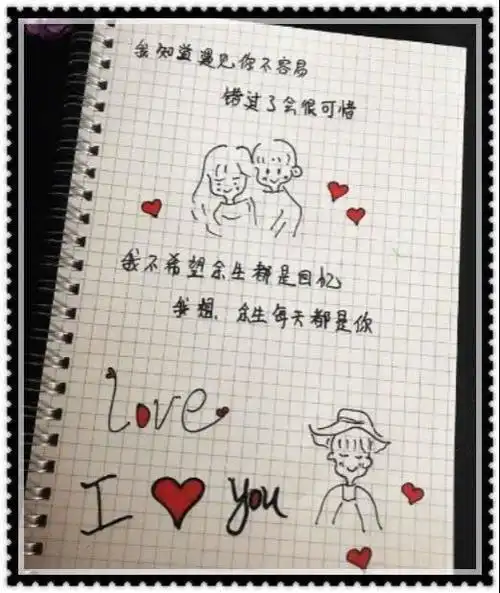 我知道遇见你不容易
错过了会很可惜
我不希望余生都是回忆
我想,余生每天都是你
love
I you